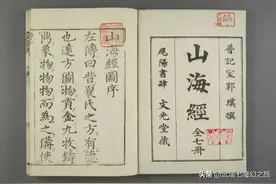 晉記室郭璞撰
山海經 全七冊
尾陽書肆 文光堂藏
山海經圖序
左傳曰昔夏氏之方有德
也遠方圖物貢金九牧鑄
鼎象物物物而為之備使
头条 @武溜七魔幻之旅